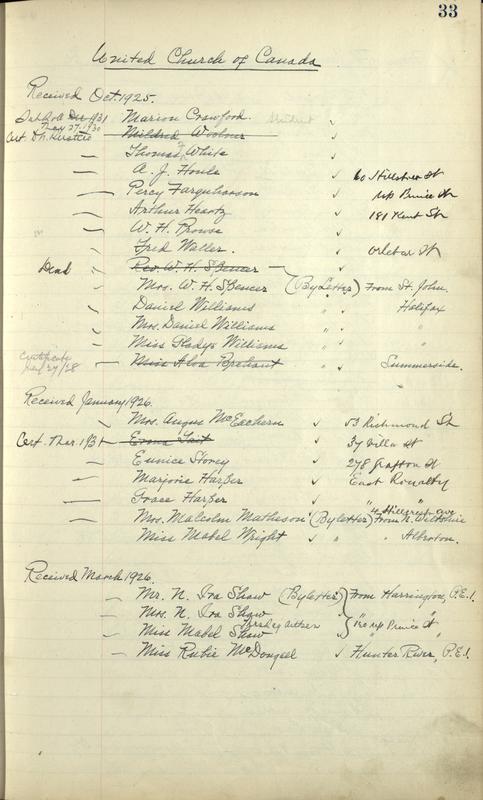 33
United Church of Canada
Received Oct. 1925.
Marion Crawford. Student
Mildred Woolner
Thomas White
A. J. Houle 60 Hillsboro St
Percy Farquharson up Prince St
Arthur Heartz 181 Kent St
W. H. Prowse
Fred Waller. Orlebar St
Dead Rev. W. H. Spencer
Mrs. W. H. Spencer (By Letter) From St. John,
Daniel Williams " Halifax
Mrs. Daniel Williams " "
Miss Gladys Williams "
Certificate
Miss Alva Brehaut " Summerside.
Received January 1926.
Mrs. Angus McEachern 53 Richmond St
Cert. Mar. 1931 Erma Tait 37 Villa St
Eunice Storey 278 Grafton St
Marjorie Harper East Royalty
Grace Harper " "
Hillcrest ave
Mrs. Malcolm Matheson (By letter) From N. Wiltshire
Miss Mabel Wright " " Alberton.
Received March 1926.
Mr. N. Ira Shaw (By letter) From Harrington, P.E.I.
Mrs. N. Ira Shaw
Miss Mabel Shaw Prince St
Miss Rubie McDougall Hunter River, P.E.I.